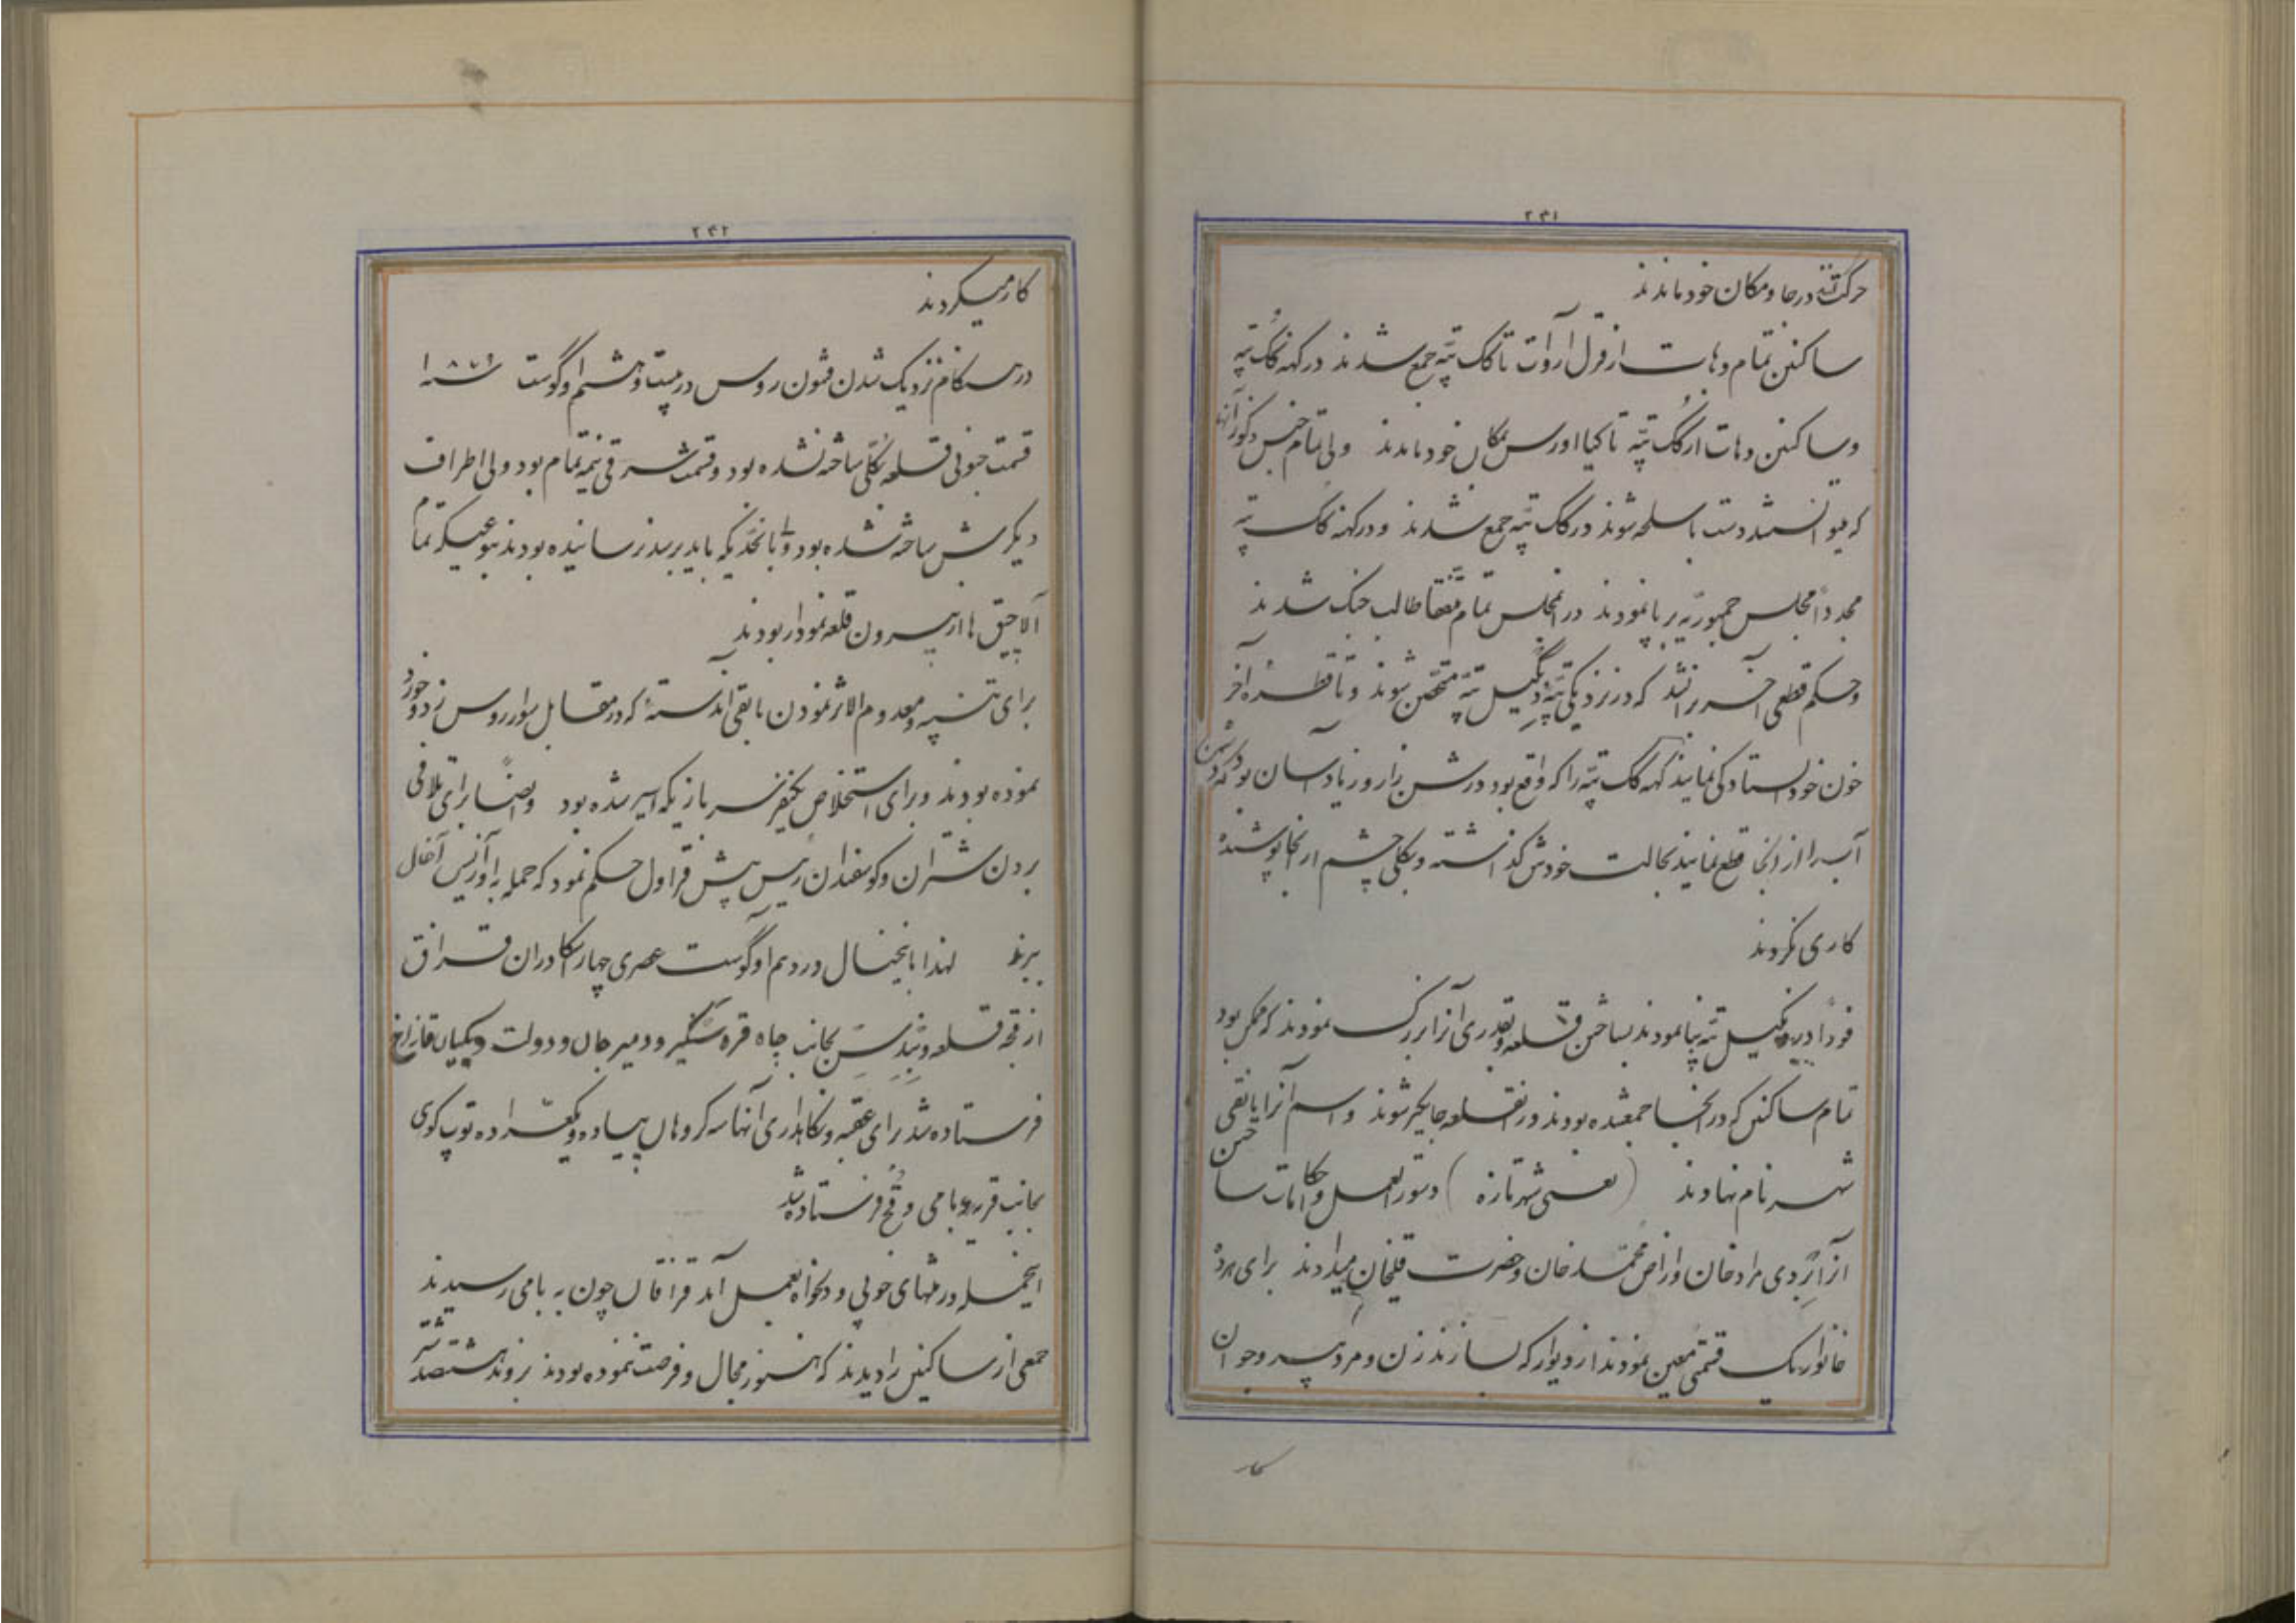 ۲۳۱
حرکت نکرده در جا و مکان خود ماندند
ساکنین تمام دهات از قزل اروات تا کک تپه جمع شدند در کهنه کک تپه
و ساکنین دهات از کک تپه تا کیا اورس بمکان خود ماندند ولی تمام جنس ذکور آنها
که میتوانستند دست باسلحه شوند در کک تپه جمع شدند و در کهنه کک تپه
مجدداً مجلس جمهوریه برپا نمودند در آن مجلس تمام متفقاً طالب جنک شدند
و حکم قطعی آخر بر آن شد که در نزدیکی تپه دنگیل تپه متحصن شوند و تا قطره آخر
خون خود ایستادگی نمایند کهنه کک تپه را که واقع بود در شن زار و زیاد آسان بود که دشمن
آب را از آنجا قطع نمایند بحالت خودش گذاشته و بکلی چشم از آنجا پوشیده
کاری نکردند
فوراً در دنگیل تپه بنا نمودند بساختن قلعه و بقدری آنرا بزرگ نمودند که ممکن بود
تمام ساکنین که در آنجا جمع شده بودند در قلعه جایگیر شوند و اسم آنرا یانقی
شهر نام نهادند (یعنی شهر تازه) دستور العمل و احکامات ساختن
آنرا بردی مراد خان و اراض محمد خان و حضرت قلیخان میدادند برای هر ده
خانوار یک قسمتی معین نمودند از دیوار که بسازند زن و مرد پیر و جوان
کار
۲۳۲
کار میکردند
در هنگام نزدیک شدن قشون روس در بیست و هشتم اوگوست سنه ۱۸۷۹
قسمت جنوبی قلعه بکلی ساخته نشده بود و قسمت شرقی نیمه تمام بود ولی اطراف
دیگرش ساخته شده بود ولی تا بانحدیکه باید برسد نرسانیده بودند بنوعیکه تمام
آلاچیق ها از بیرون قلعه نمودار بودند
برای تنبیه و معدوم الاثر نمودن باقی اندسته که در مقابل سوار روس زد و خورد
نموده بودند و برای استخلاص یکنفر سربازیکه اسیر شده بود و ایضاً برای تلافی
بردن شتران و گوسفندان رئیس پیش قراول حکم نمود که حمله باوازیس آخال
ببرند لهذا باینخیال در دهم اوگوست عصری چهار اسکادران قزاق
از قلعه و بندسن بجانب چاه قره سنگیر و دمیرجان و دولت و یکیان قازاخ
فرستاده شد برای عقبه و نگاهداری آنها سه گروهان پیاده و یکعراده توپ کوهی
بجانب قریه بامی و قچ فرستاده شد
اینحمله در منتهای خوبی و دلخواه بعمل آمد قزاقان چون به بامی رسیدند
جمعی از ساکنین را دیدند که هنوز مجال و فرصت ننموده بودند بروند هشتصد شتر